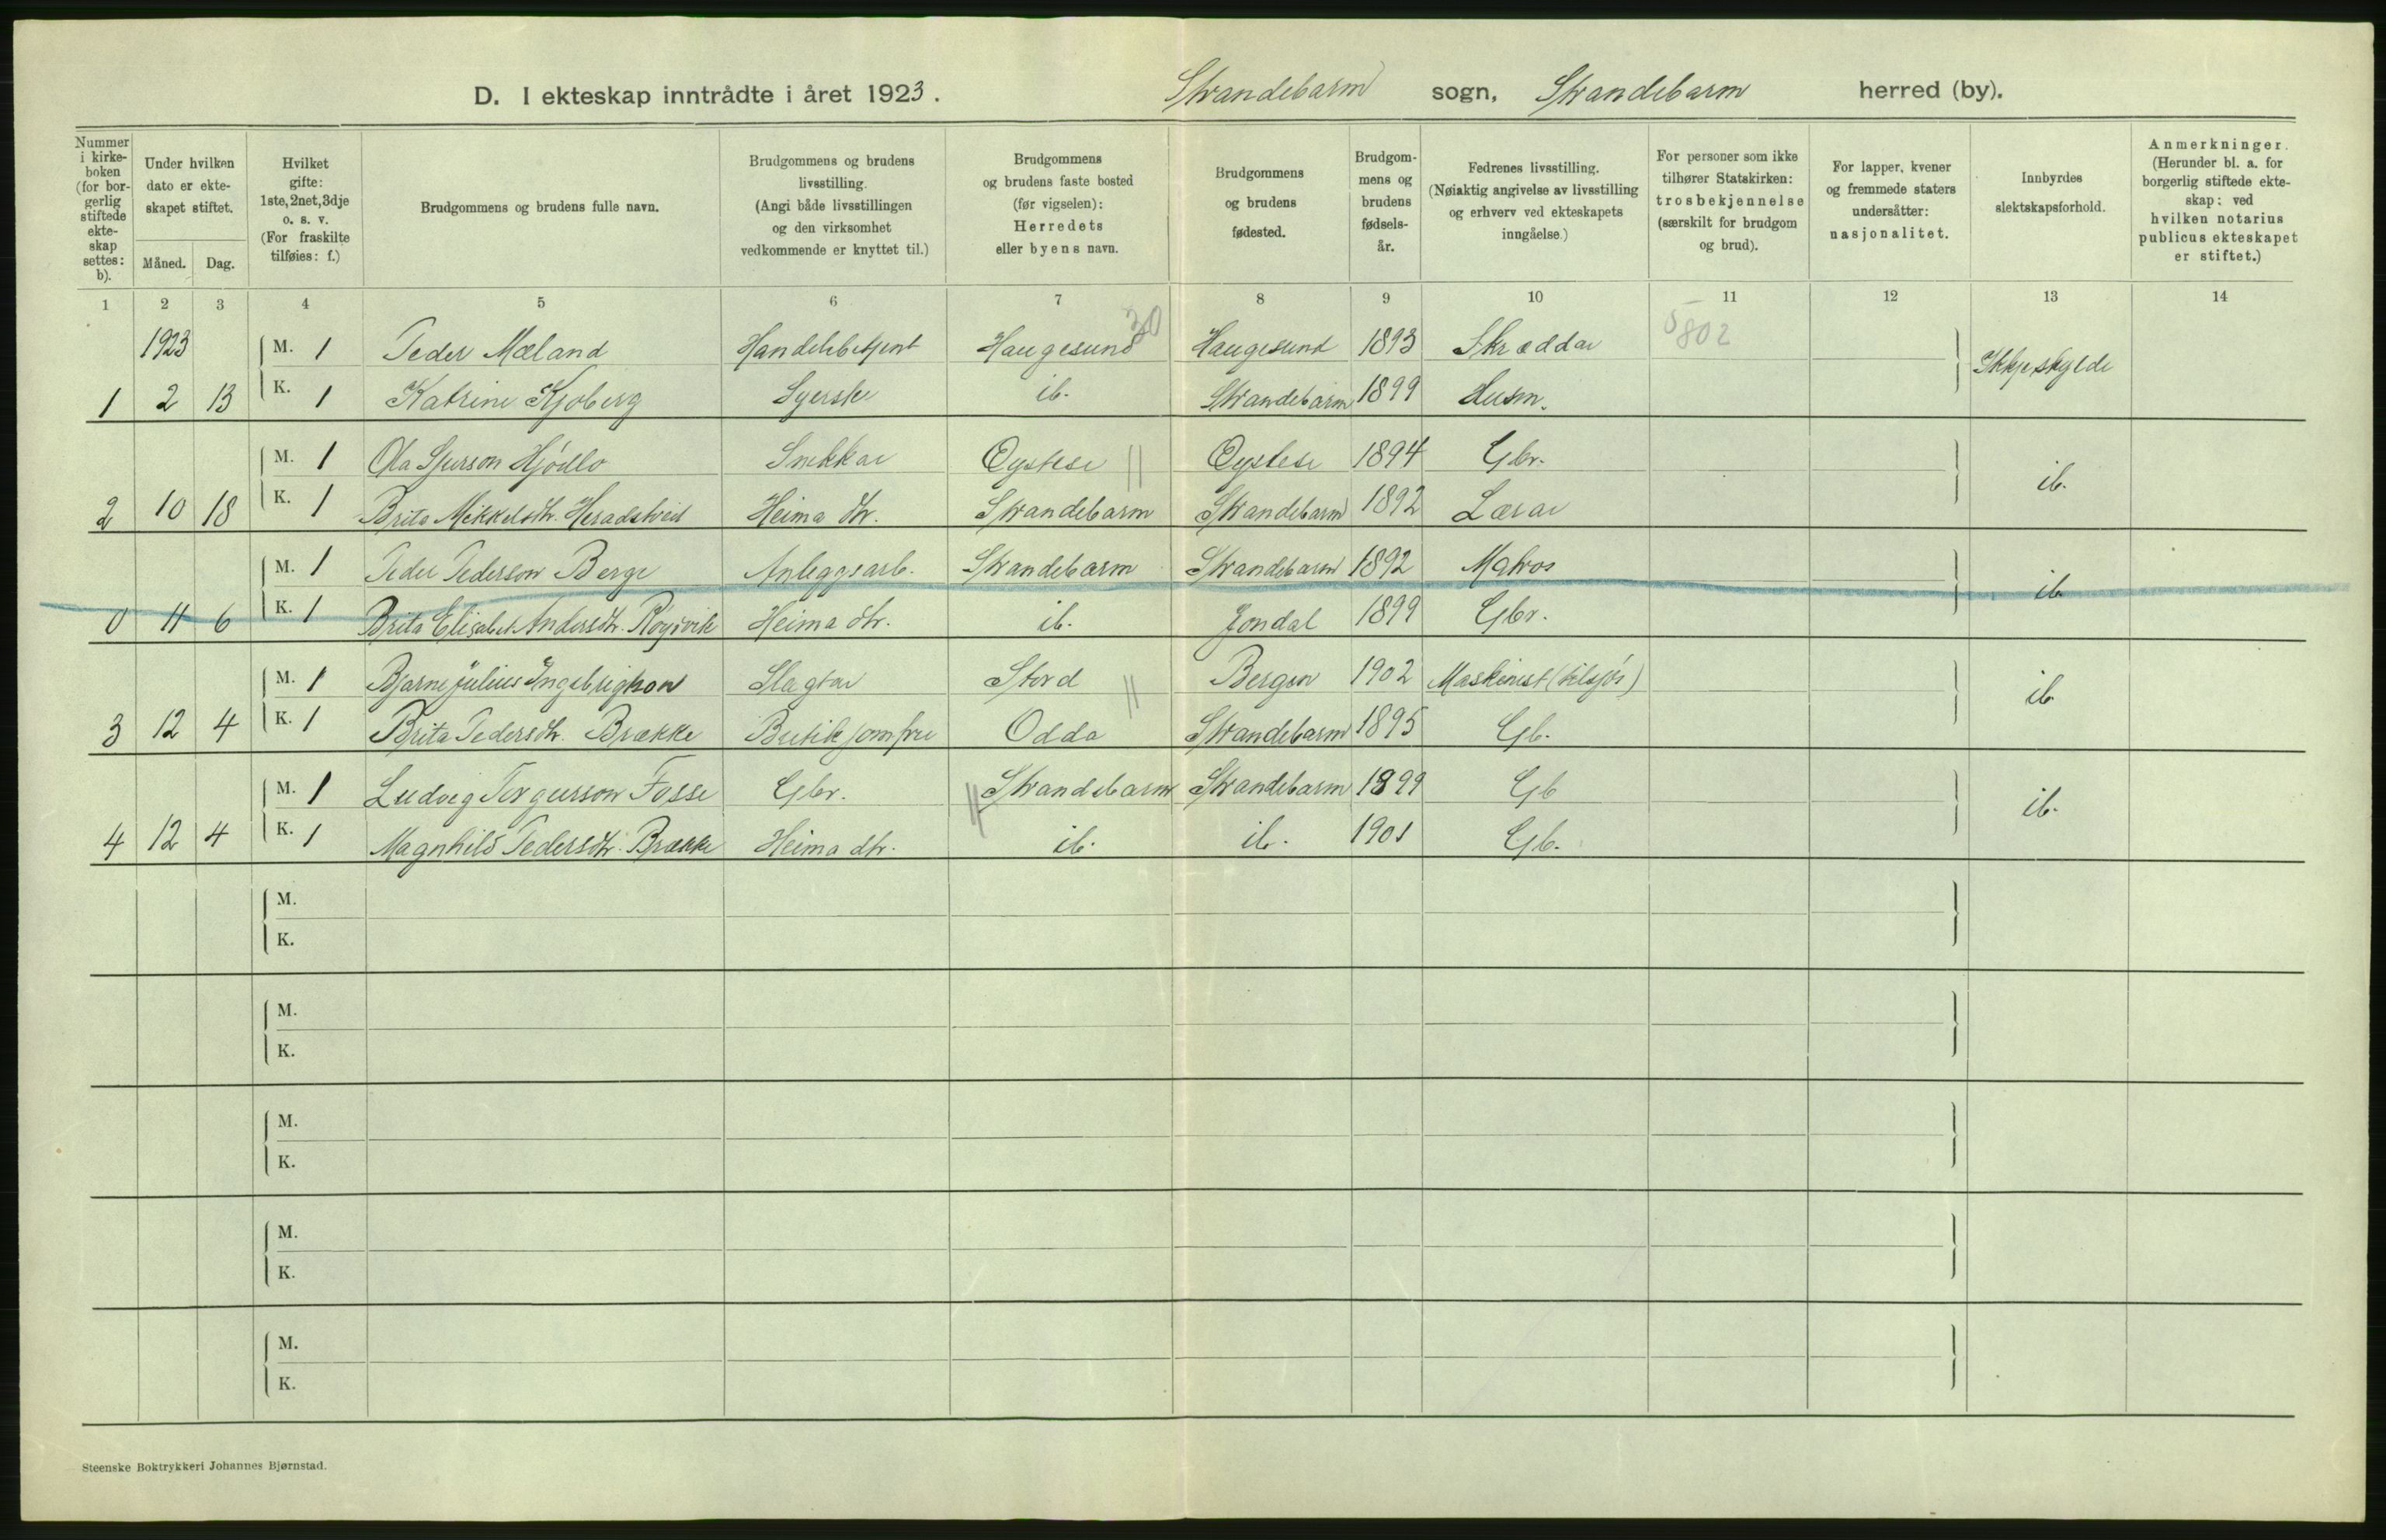 D. I ekteskap inntrådte i året 1923. Strandebarm sogn, Strandebarm herred (by).
Nummer i kirke-boken (for bor-gerlig stiftede ekte-skap settes: b).
Under hvilken dato er ekte-skapet stiftet.
Måned. Dag.
Hvilket gifte: 1ste, 2net, 3dje o. s. v. (For fraskilte tilføies: f.)
Brudgommens og brudens fulle navn.
Brudgommens og brudens livsstilling. (Angi både livsstillingen og den virksomhet vedkommende er knyttet til.)
Brudgommens og brudens faste bosted (før vigselen): Herredets eller byens navn.
Brudgommens og brudens fødested.
Brudgom-mens og brudens fødsels-år.
Fedrenes livsstilling. (Nøiaktig angivelse av livsstilling og erhverv ved ekteskapets inngåelse.)
For personer som ikke tilhører Statskirken: trosbekjennelse (særskilt for brudgom og brud).
For lapper, kvener og fremmede staters undersåtter: nasjonalitet.
Innbyrdes slektskapsforhold.
Anmerkninger. (Herunder bl. a. for borgerlig stiftede ekte-skap: ved hvilken notarius publicus ekteskapet er stiftet.)
1 2 3 4 5 6 7 8 9 10 11 12 13 14
1923 M. 1 Peder Mæland Handelsbetjent Haugesund 30 Haugesund 1893 Skræddar 5802
Ikkje skylde
1 2 13 K. 1 Katrine Kjoberg Syerske ib. Strandebarm 1899 Husm.
M. 1 Ola Sjurson Hjödlo Snekkar Øystese Øystese 1894 Gbr.
ib.
2 10 18 K. 1 Brita Mikkelsdtr. Heradstveit Heima dtr. Strandebarm Strandebarm 1892 Lærar
M. 1 Peder Pederson Berge Anleggsarb. Strandebarm Strandebarm 1892 Matros
ib.
0 11 6 K. 1 Brita Elisabet Andersdtr. Röyrvik Heima dtr. ib. Jondal 1899 Gbr.
M. 1 Bjarne Julius Ingebrigtson Slagtar Stord Bergen 1902 Maskinist (tilsjös)
ib.
3 12 4 K. 1 Brita Pedersdtr. Brække Butikjomfru Odda Strandebarm 1895 Gb.
M. 1 Ludvig Torgeirson Fosse Gbr. Strandebarm Strandebarm 1899 Gb
ib.
4 12 4 K. 1 Magnhild Pedersdtr. Brække Heima dtr. ib. ib. 1901 Gb.
M.
K.
M.
K.
M.
K.
M.
K.
M.
K.
Steenske Boktrykkeri Johannes Bjørnstad.